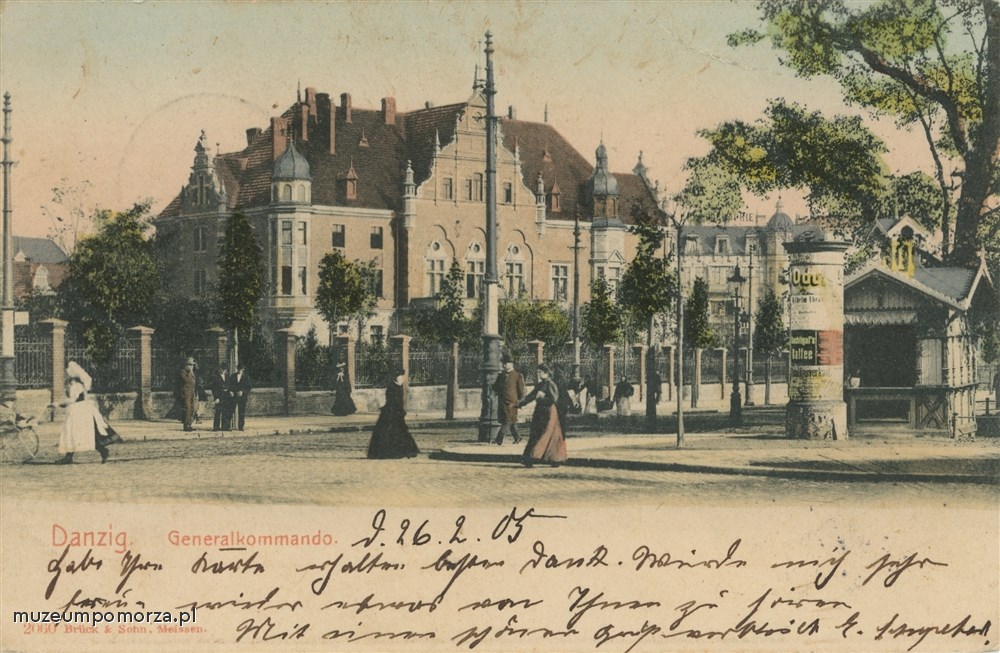 Odol
Kaffee
Danzig. Generalkommando. d. 26. 2. 05
Habe Ihre Karte erhalten besten Dank. Würde mich sehr
freuen wieder etwas von Ihnen zu hören
muzeumpomorza.pl
2060 Brück & Sohn, Meissen.
Mit einem schönen Gruß verbleib E.